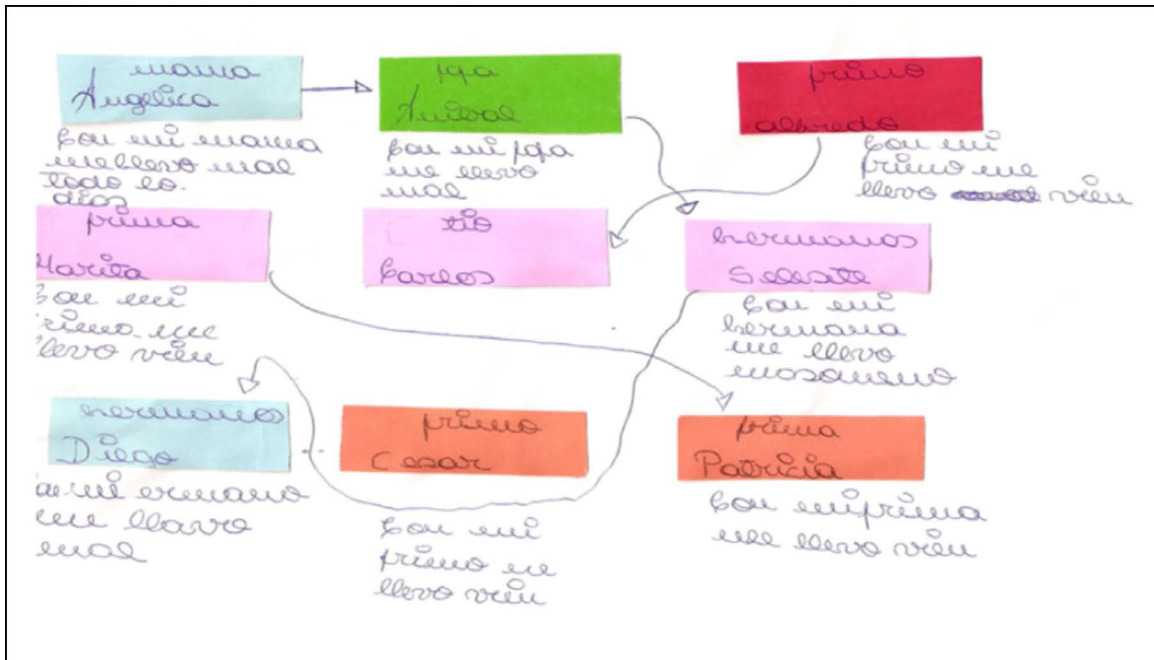 mama
Angelica
Con mi mama
mellevo mal
todo lo.
dias
papa
Anibal
Con mi papa
me llevo
mal
primo
alfredo
Con mi
primo me
llevo vien
prima
Marita
Con mi
prima me
llevo vien
tio
Carlos
hermanos
Selesite
Con mi
hermana
me llevo
hermanos
Diego
mi ermano
me llavo
mal
primo
Cesar
Con mi
primo me
llevo vien
prima
Patricia
Con miprima
me llevo vien